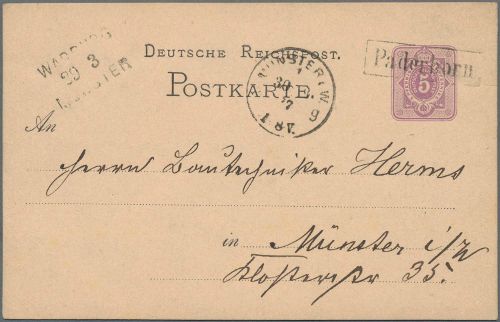 WARBURG
30 3
MÜNSTER
DEUTSCHE REICHSPOST.
POSTKARTE.
MÜNSTER I.W.
30
Paderborn.
5
An
Herrn Bautechniker Herms
in Münster i/w
Klosterstr 35.